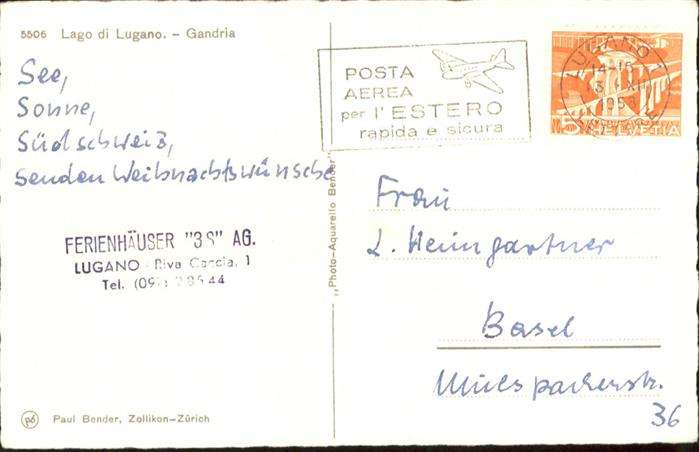 5506 Lago di Lugano. – Gandria
See,
Sonne,
Südschweiz,
senden Weihnachtswünsche
FERIENHÄUSER "3S" AG.
LUGANO - Riva Caccia, 1
Tel. (09
Paul Bender, Zollikon-Zürich
"Photo-Aquarello Bender"
POSTA
AEREA
per l'ESTERO
rapida e sicura
LUGANO 1
14-15
XII
195
5 HELVETIA
Frau
L. Heimgartner
Basel
36